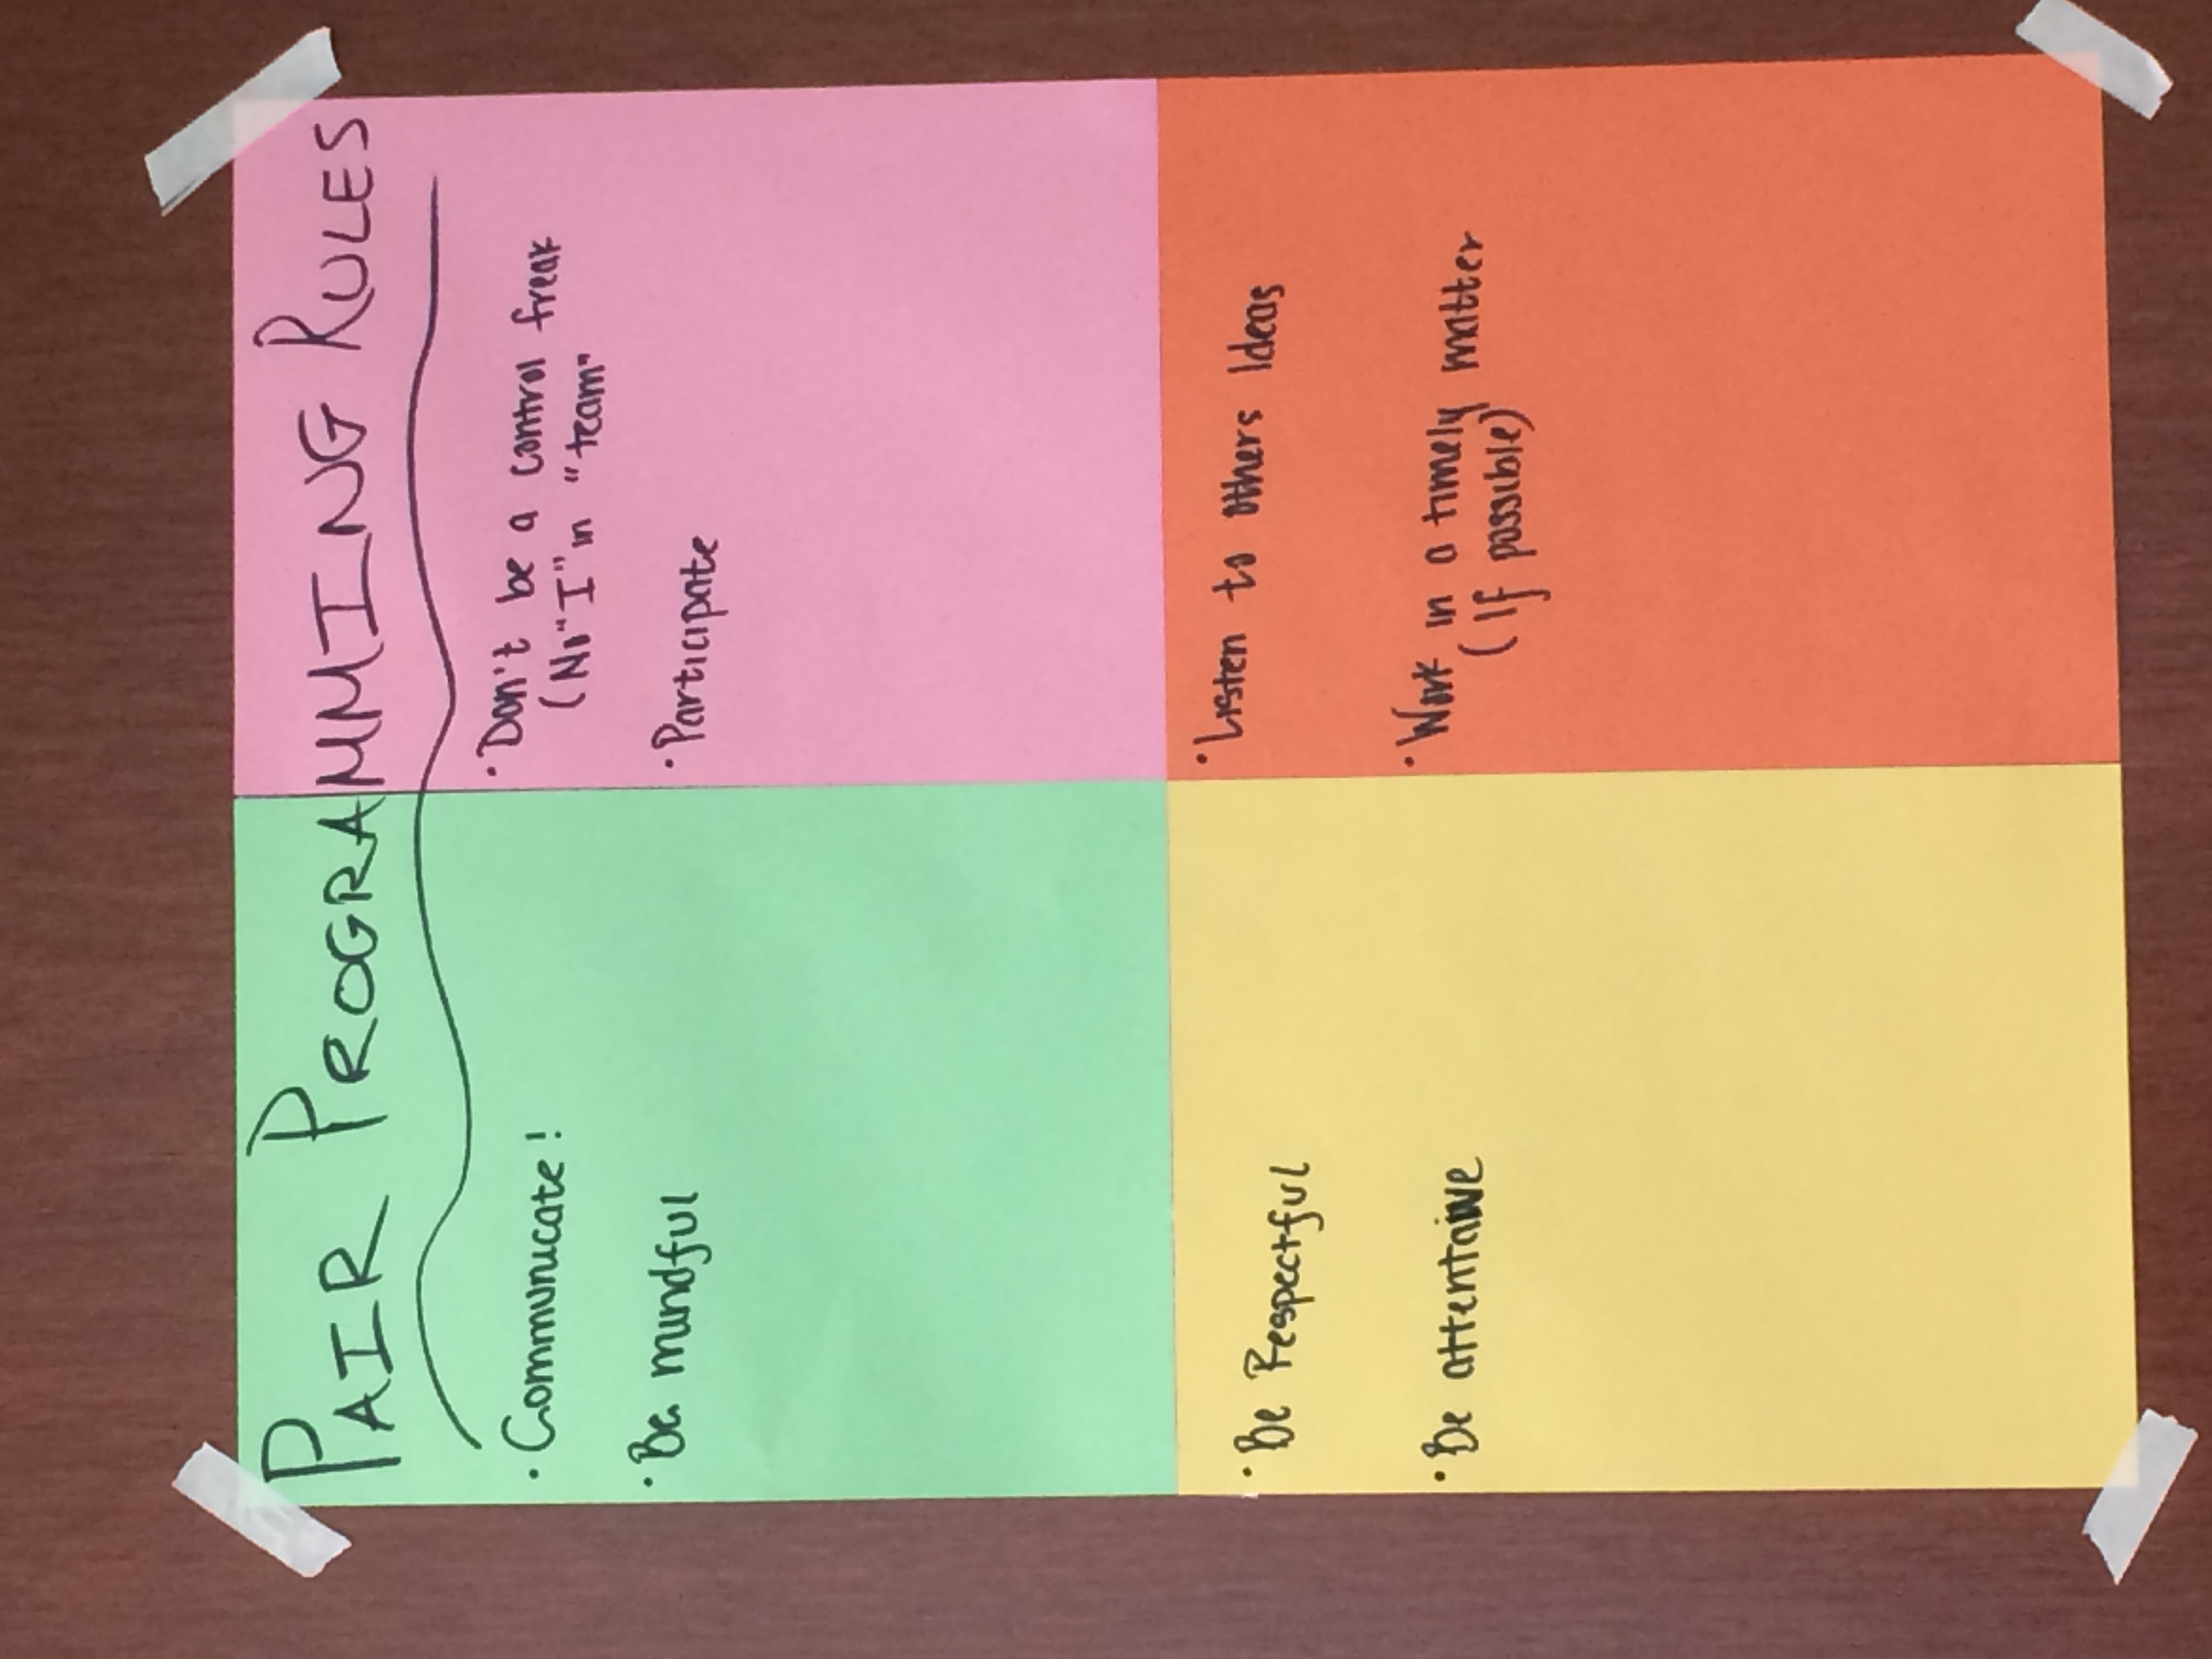 PAIR PROGRAMMING RULES
· Communicate!
· Be mindful
· Don't be a control freak
(No "I" in "team"
· Participate
· Be Respectful
· Be attentaive
· Listen to others Ideas
· Work in a timely matter
(If possible)